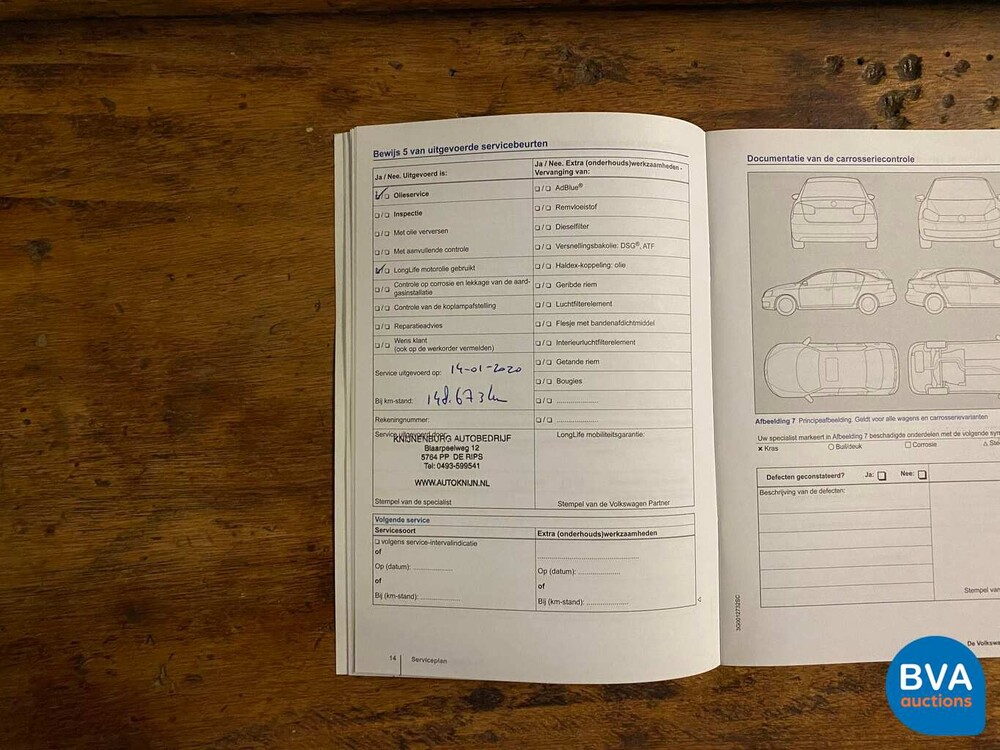 Bewijs 5 van uitgevoerde servicebeurten
Ja / Nee. Uitgevoerd is:
❑/❑ Olieservice
❑/❑ Inspectie
❑/❑ Met olie verversen
❑/❑ Met aanvullende controle
❑/❑ LongLife motorolie gebruikt
❑/❑ Controle op corrosie en lekkage van de aard-
gasinstallatie
❑/❑ Controle van de koplampafstelling
❑/❑ Reparatieadvies
❑/❑ Wens klant
(ook op de werkorder vermelden)
Service uitgevoerd op: 14-01-2020
Bij km-stand: 148.673 km
Rekeningnummer:
Service uitgevoerd door:
KNIJNENBURG AUTOBEDRIJF
Blaarpeelweg 12
5764 PP DE RIPS
Tel: 0493-599541
WWW.AUTOKNIJN.NL
Stempel van de specialist
Ja / Nee. Extra (onderhouds)werkzaamheden -
Vervanging van:
❑/❑ AdBlue®
❑/❑ Remvloeistof
❑/❑ Dieselfilter
❑/❑ Versnellingsbakolie: DSG®, ATF
❑/❑ Haldex-koppeling: olie
❑/❑ Geribde riem
❑/❑ Luchtfilterelement
❑/❑ Flesje met bandenafdichtmiddel
❑/❑ Interieurluchtfilterelement
❑/❑ Getande riem
❑/❑ Bougies
❑/❑ ....................
❑/❑ ....................
LongLife mobiliteitsgarantie:
Stempel van de Volkswagen Partner
Volgende service
Servicesoort
❑ volgens service-intervalindicatie
of
Op (datum): ....................
of
Bij (km-stand): ....................
Extra (onderhouds)werkzaamheden
....................
Op (datum): ....................
of
Bij (km-stand): ....................
14 Serviceplan
Documentatie van de carrosseriecontrole
Afbeelding 7 Principeafbeelding. Geldt voor alle wagens en carrosserievarianten
Uw specialist markeert in Afbeelding 7 beschadigde onderdelen met de volgende
✕ Kras ○ Buil/deuk □ Corrosie
Defecten geconstateerd? Ja: □ Nee: □
Beschrijving van de defecten:
Stempel van
3G0012732SC
BVA
auctions